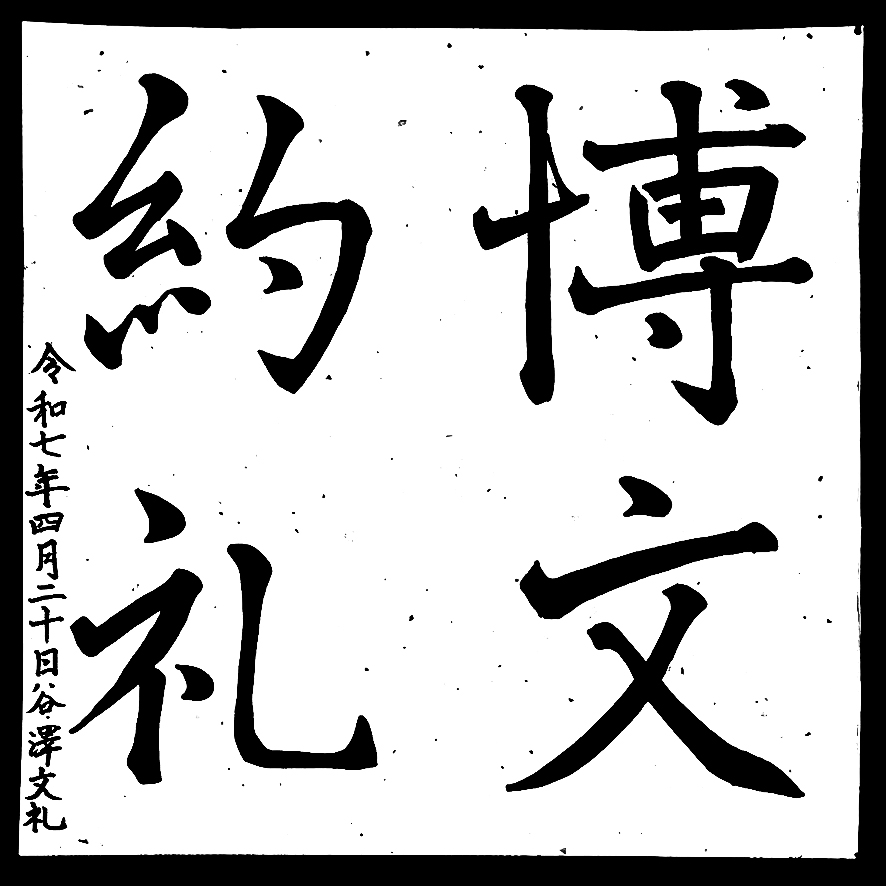 博文
約礼
令和七年四月二十日谷澤文礼